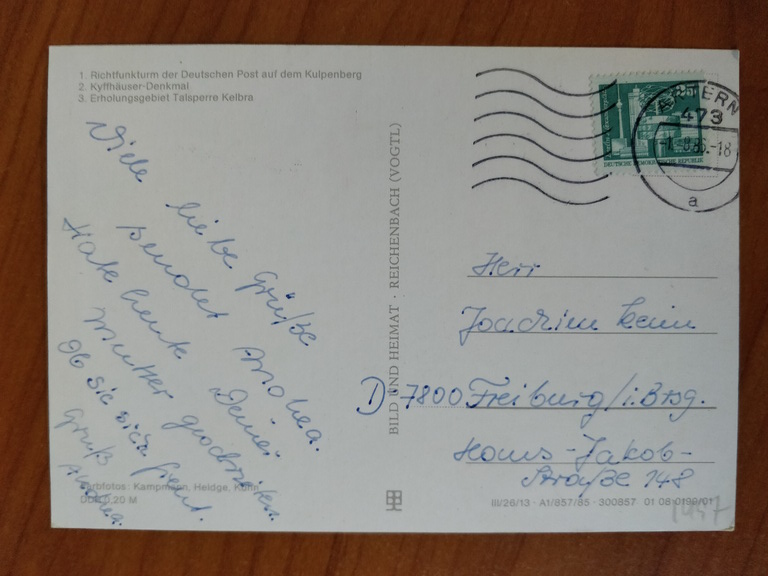 1. Richtfunkturm der Deutschen Post auf dem Kulpenberg
2. Kyffhäuser-Denkmal
3. Erholungsgebiet Talsperre Kelbra
Viele liebe Grüße
sendet Andrea.
Habe heute Deiner
Mutter geschrieben.
Ob Sie sich freut.
Gruß
Andrea.
Farbfotos: Kampmann, Heldge, Korn
DDR 0,20 M
BILD UND HEIMAT · REICHENBACH (VOGTL)
25
DEUTSCHE DEMOKRATISCHE REPUBLIK
ARTERN
473
-1.-9.85.-18
a
Herr
Joachim
D-7800 Freiburg/i. Brsg.
Hans-Jakob-
Straße 148
III/26/13 · A1/857/85 · 300857 01 08 0199/01
1957